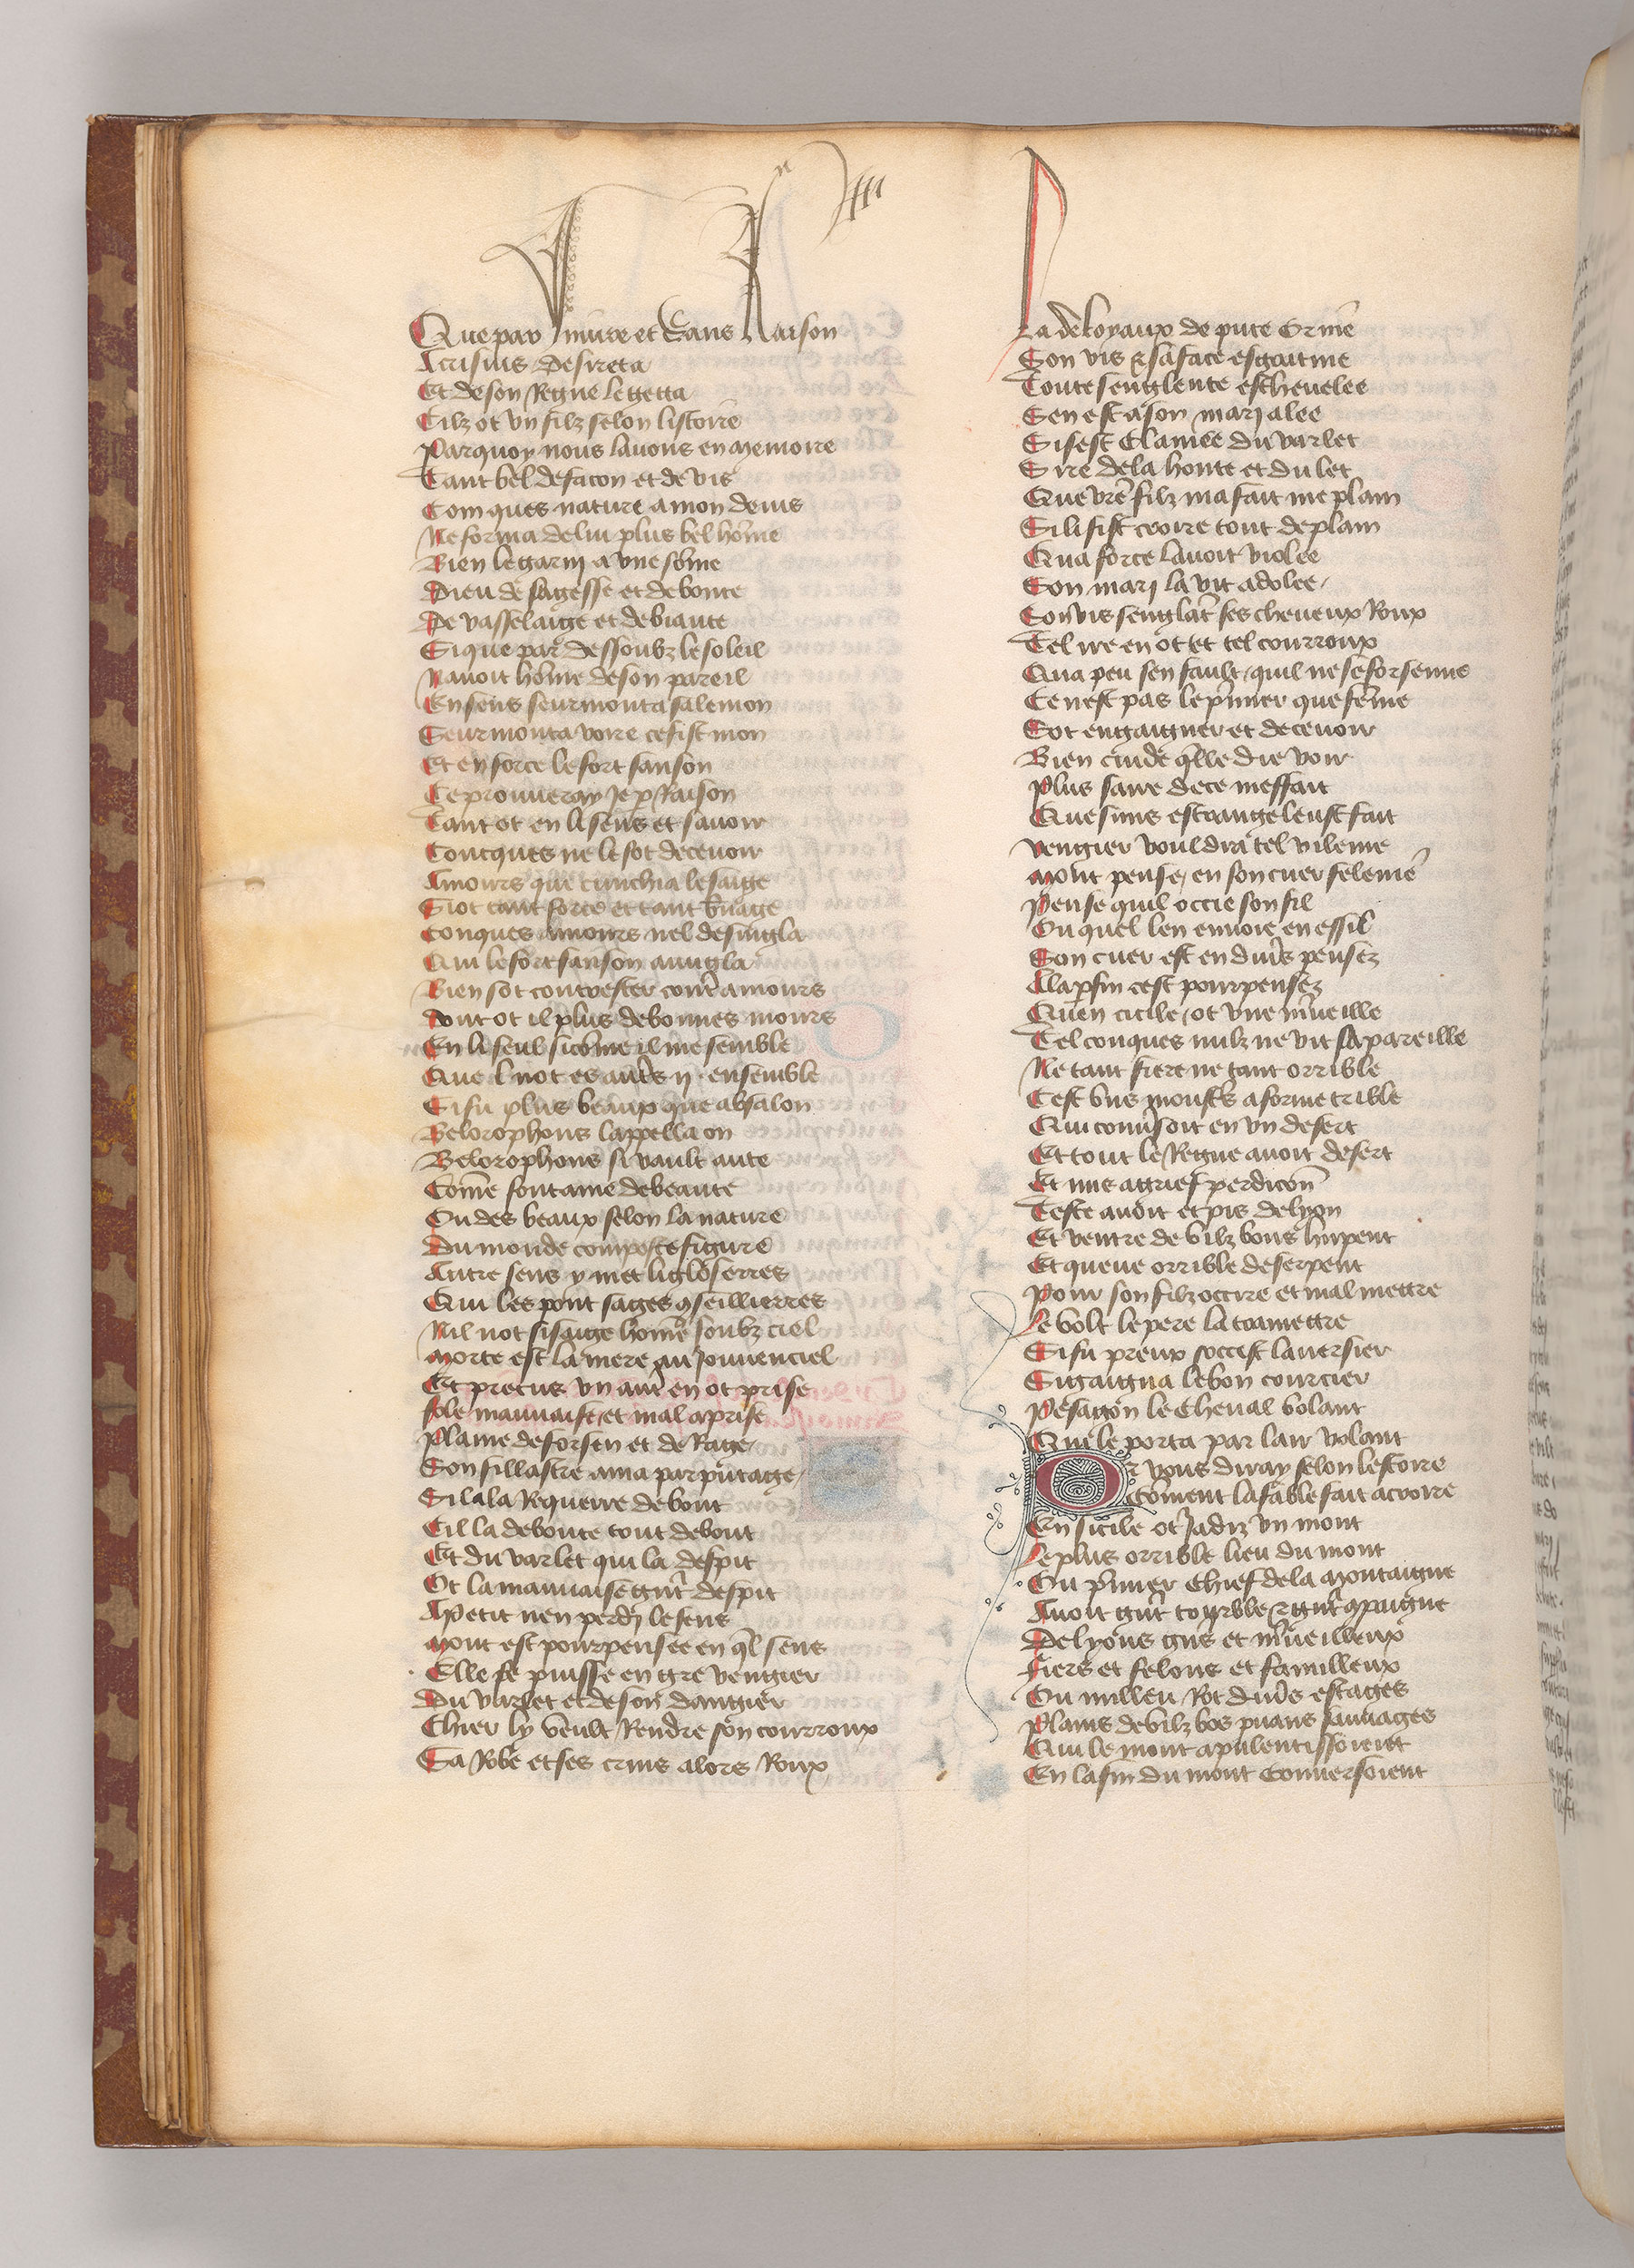 Que par Iniure et Sans Raison
Acrisius desireta
Et de son Regne le getta
Cilz ot vn filz selon listoire
Par quoy nous lauons en memoire
Tant bel de facon et de vis
Conques nature a mon deuis
Ne forma de lui plus bel hōme
Bien le garni a vne sōme
Dieu de sagesse et de bonte
De vasselaige et de biaute
Si que par dessoubz le soleil
Nauoit hōme de son pareil
En sens seurmonta salemon
Seurmonta voire ce fist mon
Et en force le fort sanson
Ce prouueray Je p Raison
Tant ot en li sens et sauoir
Conques ne le sot deceuoir
Amours que cunchia le saige
Si ot tant force et tant
Conques amours nel desuigla
Qui le fort sanson auugla
Bien sot contrester contr̄ amours
dont ot il plus de bonnes mours
En li seul si cōme il me semble
Que l not es autr̄s ij ensemble
Si fu plus beaux que absalon
Belorophons lappella on
Belorophons si vault aute
Cōme fontaine de beaute
Ou des beaux selon la nature
Du monde composte figure
Autre sens y met li gloserres
Qui les pont sages 9seillierres
Nil not si saige hōme soubz ciel
Morte est la mere au Jouuenciel
Et pretus vn autr̄ en ot prise
fole mauuaise et mal aprise
Plaine de forsen et de Rage
Son fillastre ama par putage
Si lala Requerre de bout
Cil la deboute tout debout
Et du varlet qui la despit
Ot la mauuaise gnt̄ despit
A petit nen perdi le sens
Mout est pourpensee en ql̄ sens
Elle se puisse en gre vengier
Du varlet et de son dangier
Chier ly veult Rendre son courroux
Sa Robe et ses crins alors Roux
La desloyaux de pute Orine
Son vis & sa face esgratine
Toute senglente escheuelee
Sen est a son mari alee
Si sest Clamee du varlet
Sire de la honte et du let
Que vr̄e filz ma fait me plain
Si li fist croire tout de plain
Qua force lauoit violee
Son mari la vit adolee
Son vis senglāt ses cheueux Roux
Tel ire en ot et tel courroux
Qua peu sen fault quil ne se forsenne
Ce nest pas le p̄mier que fēme
Sot engaigner et deceuoir
Bien cuide qlle die voir
Plus faire de ce meffait
Que suns estrange leust fait
vengier vouldra tel vilenie
Mout pense en son cuer felenie
Pense quil occie son fil
Ou quel len enuoie en essil
Son cuer est en diuers pensez
A la p fin cest pourpensez
Quen cicile ot vne m̄ueille
Tel conques nulz ne vit sa pareille
Ne tant fiere ne tant orrible
Cest vns monstr̄s a forme trible
Qui conūsoit en vn desert
Et tout le Regne auoit desert
Et mis a grief perdicōn
Teste auoit et pis de lyon
Et ventre de vilz bous lupent
Et queue orrible de serpent
Pour son filz occire et mal mettre
Le volt le pere la tramettre
Si fu preux soccist lauersier
Si gaigna le bon courcier
Pesagon le Cheual volant
Qui le porta par lair volant
Or vous diray selon lestoire
Cōment la fable fait acroire
En sicile ot Jadiz vn mont
Le plus orrible lieu du mont
Ou p̄mier Chief de la Montaigne
Auoit gnt̄ tourble & gnt̄ 9paigne
De lyons gns et m̄ueilleux
Fiers et felons et familleux
Ou milieu Rot diuers estages
Plains de vilz bos puans sauuages
Qui le mont apulentissoient
En la fin du mont Conuersoient